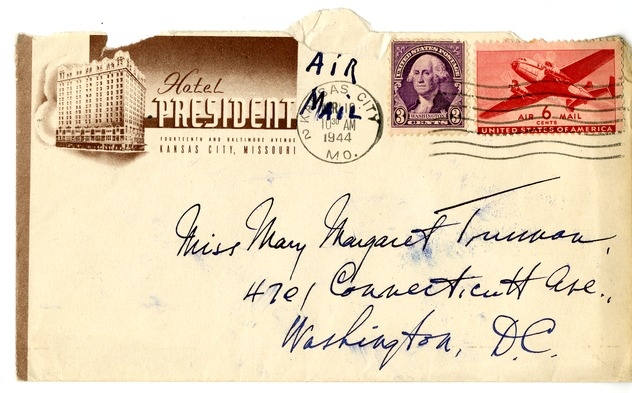 Hotel
PRESIDENT
FOURTEENTH AND BALTIMORE AVENUE
KANSAS CITY, MISSOURI
AIR
MAIL
KANSAS CITY
10 AM
1944
2
MO.
UNITED STATES POSTAGE
WASHINGTON
3 CENTS 3
AIR 6 MAIL
CENTS
UNITED STATES OF AMERICA
Miss Mary Margaret Truman,
4701 Connecticutt Ave.,
Washington, D.C.